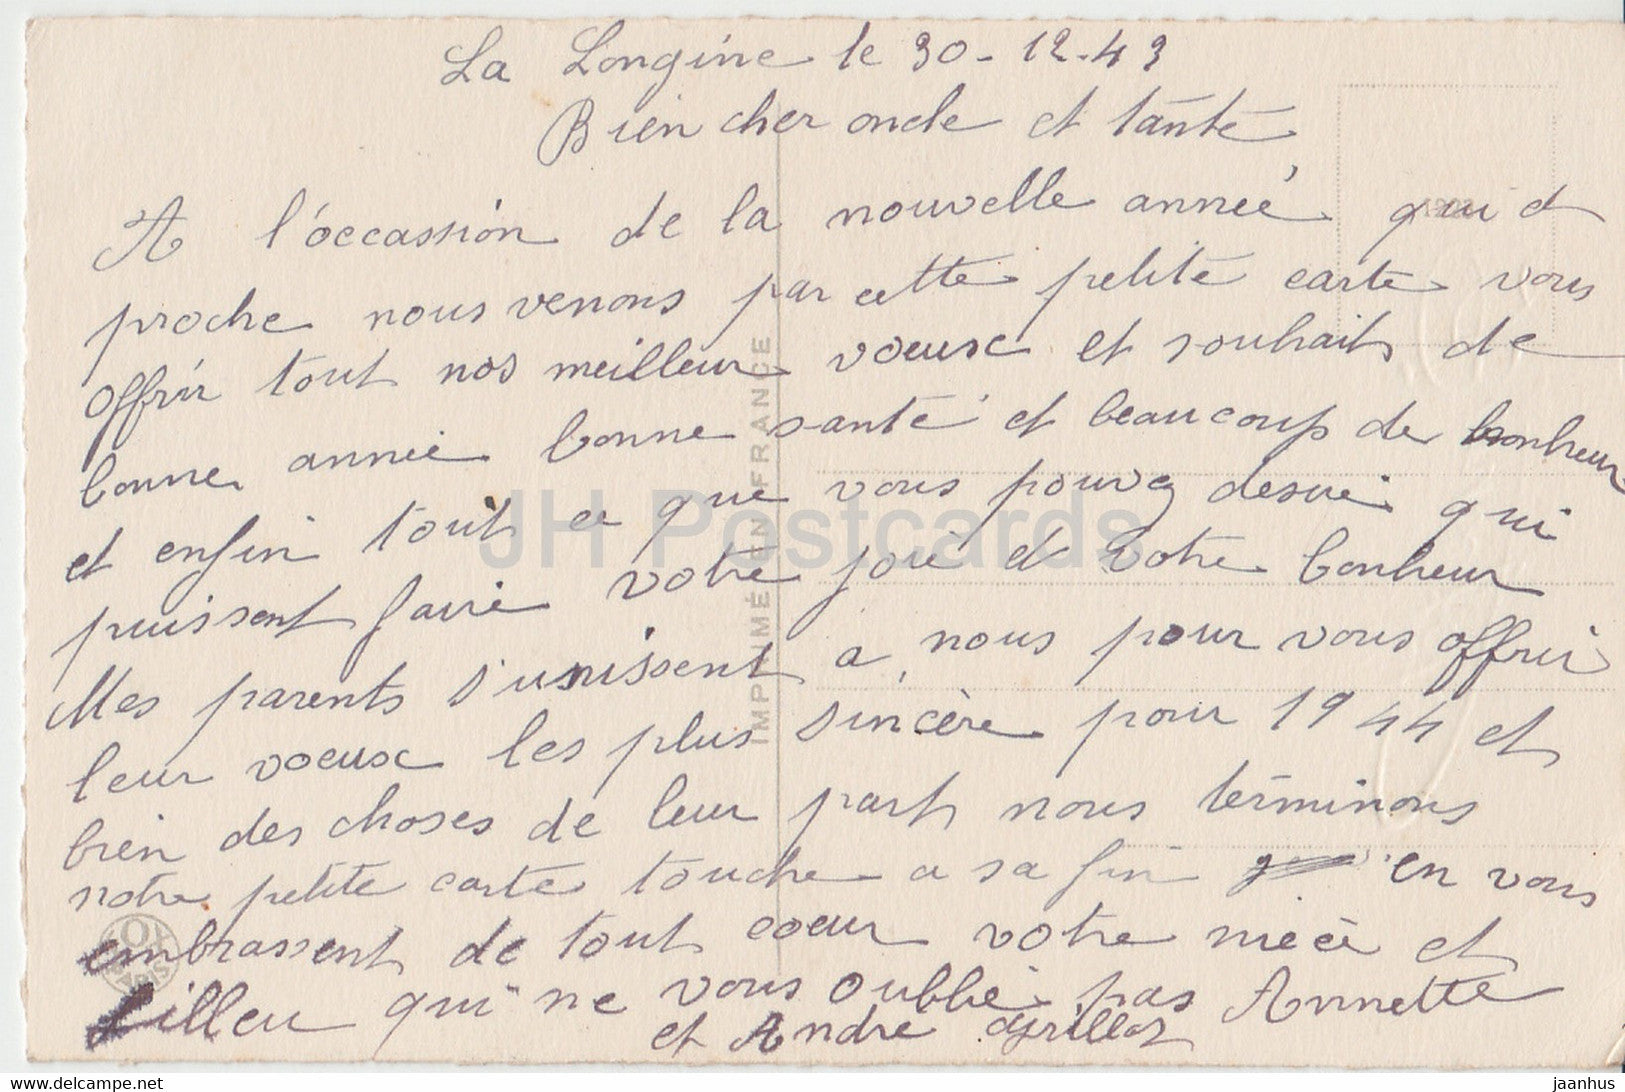 La Longine le 30-12-43
Bien cher oncle et tante
A l'occassion de la nouvelle année qui et
proche nous venons par cette petite carte vous
offrir tout nos meilleur voeux et souhaits de
bonne année bonne santé et beaucoup de bonheur
et enfin tout ce que vous pouvez desiré qui
puissent faire votre joie et votre bonheur
Mes parents s'unissent a nous pour vous offrir
leur voeux les plus sincère pour 1944 et
bien des choses de leur part nous términons
notre petite carte touche a sa fin en vous
embrassent de tout coeur votre niéce et
filleu qui ne vous oublié pas Annette
et André
IMPRIMÉ EN FRANCE
JH Postcards
oldthing.com
jaanhus